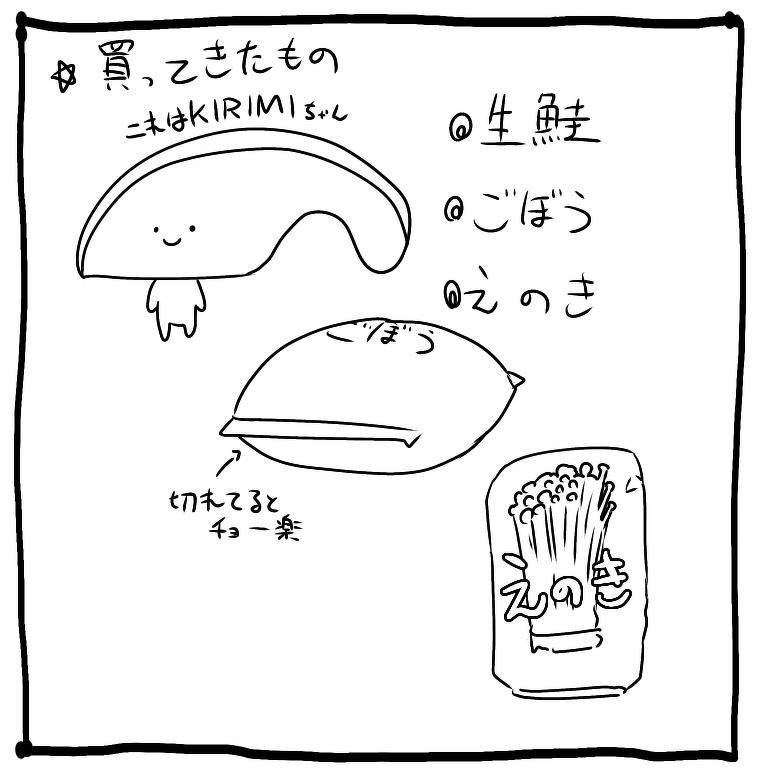 ☆ 買ってきたもの
これはKIRIMIちゃん
◎生鮭
◎ごぼう
◎えのき
ごぼう
切れてると
チョー楽
えのき